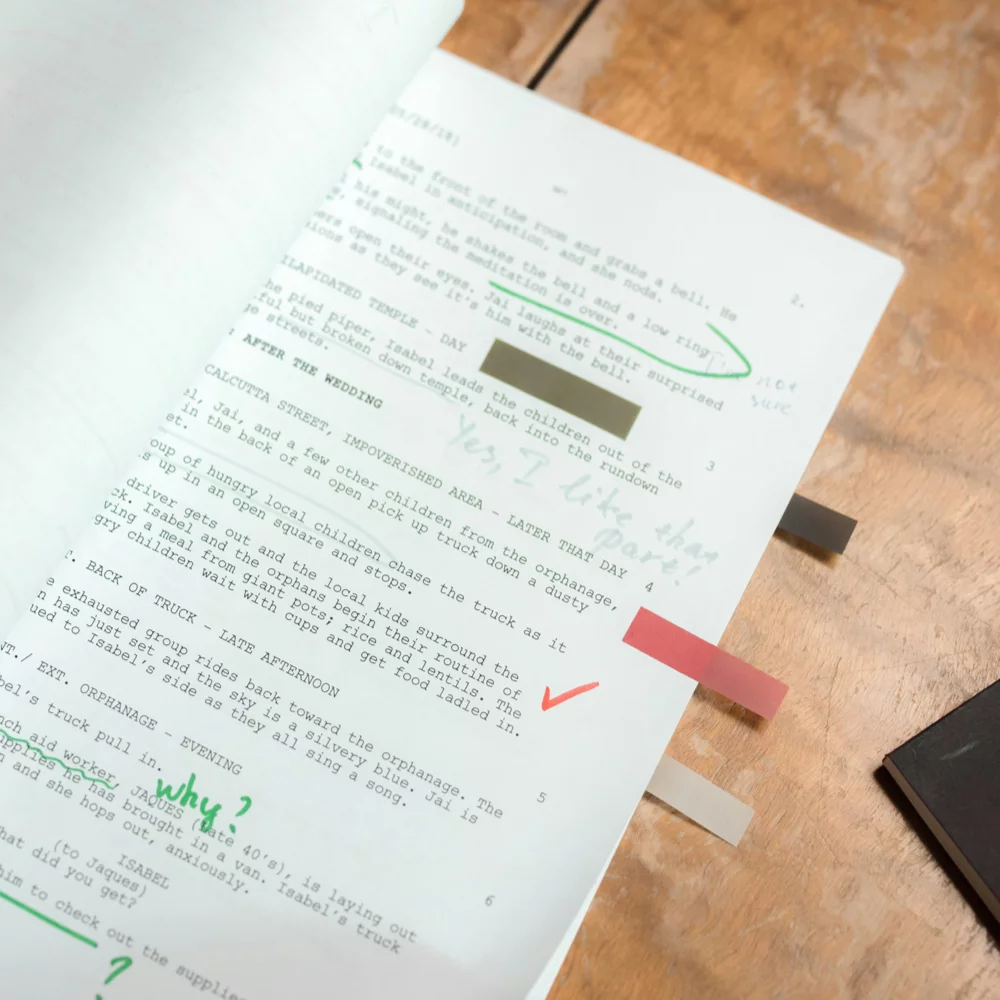 2.
to the front of the room and grabs a bell. He
Isabel in anticipation, and she nods.
his might, he shakes the bell and a low ring
signaling the meditation is over.
open their eyes. Jai laughs at their surprised
as they see it's him with the bell.
not
sure
DILAPIDATED TEMPLE - DAY
3
pied piper, Isabel leads the children out of the
but broken down temple, back into the rundown
streets.
Yes, I like that
part!
AFTER THE WEDDING
CALCUTTA STREET, IMPOVERISHED AREA - LATER THAT DAY
4
Jai, and a few other children from the orphanage,
in the back of an open pick up truck down a dusty
of hungry local children chase the truck as it
up in an open square and stops.
driver gets out and the local kids surround the
Isabel and the orphans begin their routine of
a meal from giant pots; rice and lentils. The
children wait with cups and get food ladled in.
BACK OF TRUCK - LATE AFTERNOON
5
exhausted group rides back toward the orphanage. The
has just set and the sky is a silvery blue. Jai is
to Isabel's side as they all sing a song.
EXT. ORPHANAGE - EVENING
6
truck pull in.
why?
aid worker, JAQUES (late 40's), is laying out
supplies he has brought in a van. Isabel's truck
and she hops out, anxiously.
ISABEL
(to Jaques)
What did you get?
him to check out the supplies
?